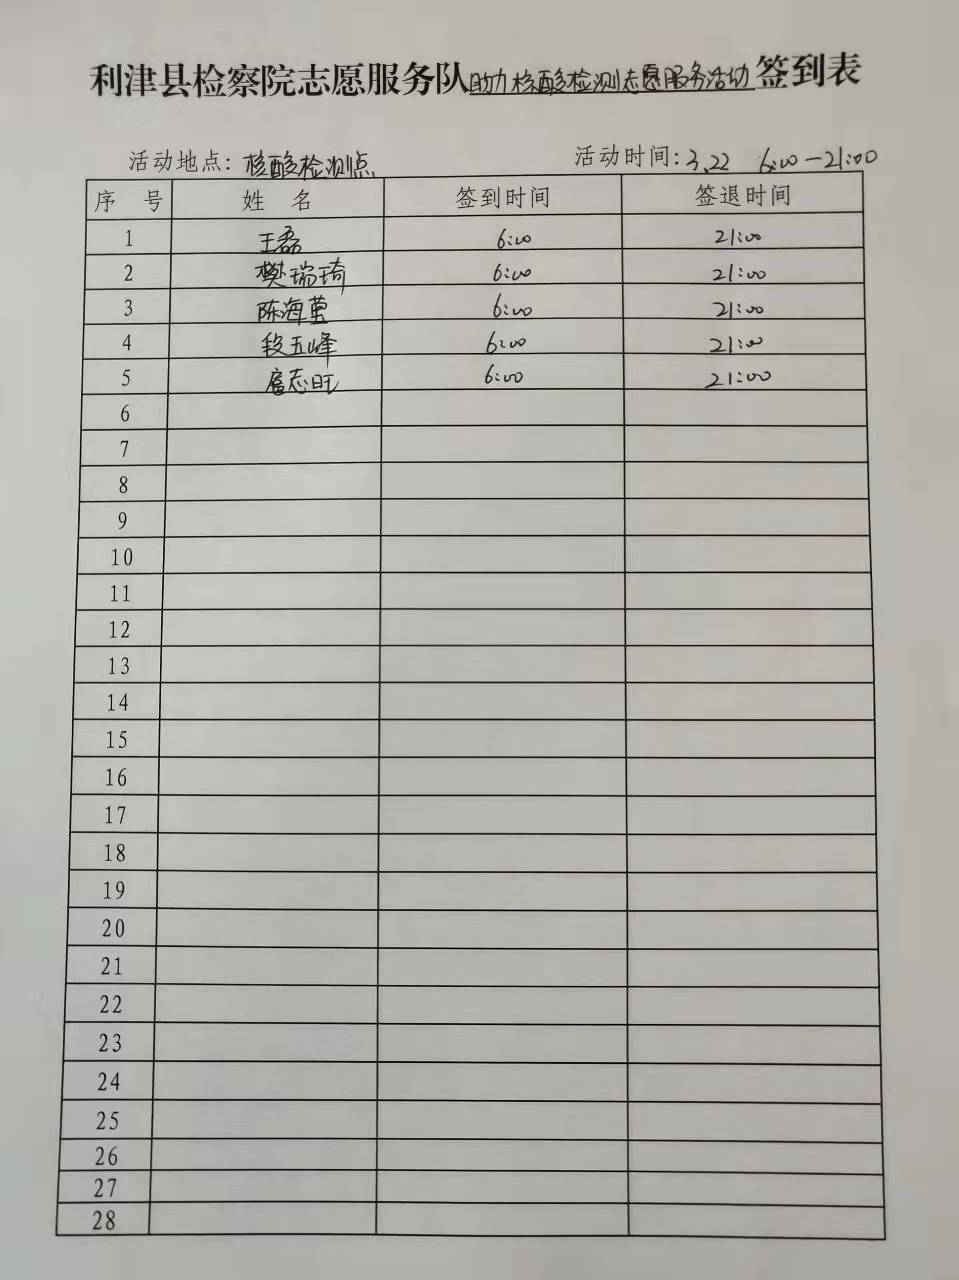 利津县检察院志愿服务队助力核酸检测志愿服务活动签到表
活动地点：核酸检测点 活动时间：3.22 6:00—21:00
序 号 姓 名 签到时间 签退时间
1 王磊 6:00 21:00
2 樊瑞琦 6:00 21:00
3 陈海莹 6:00 21:00
4 段五峰 6:00 21:00
5 扈志旺 6:00 21:00
6
7
8
9
10
11
12
13
14
15
16
17
18
19
20
21
22
23
24
25
26
27
28